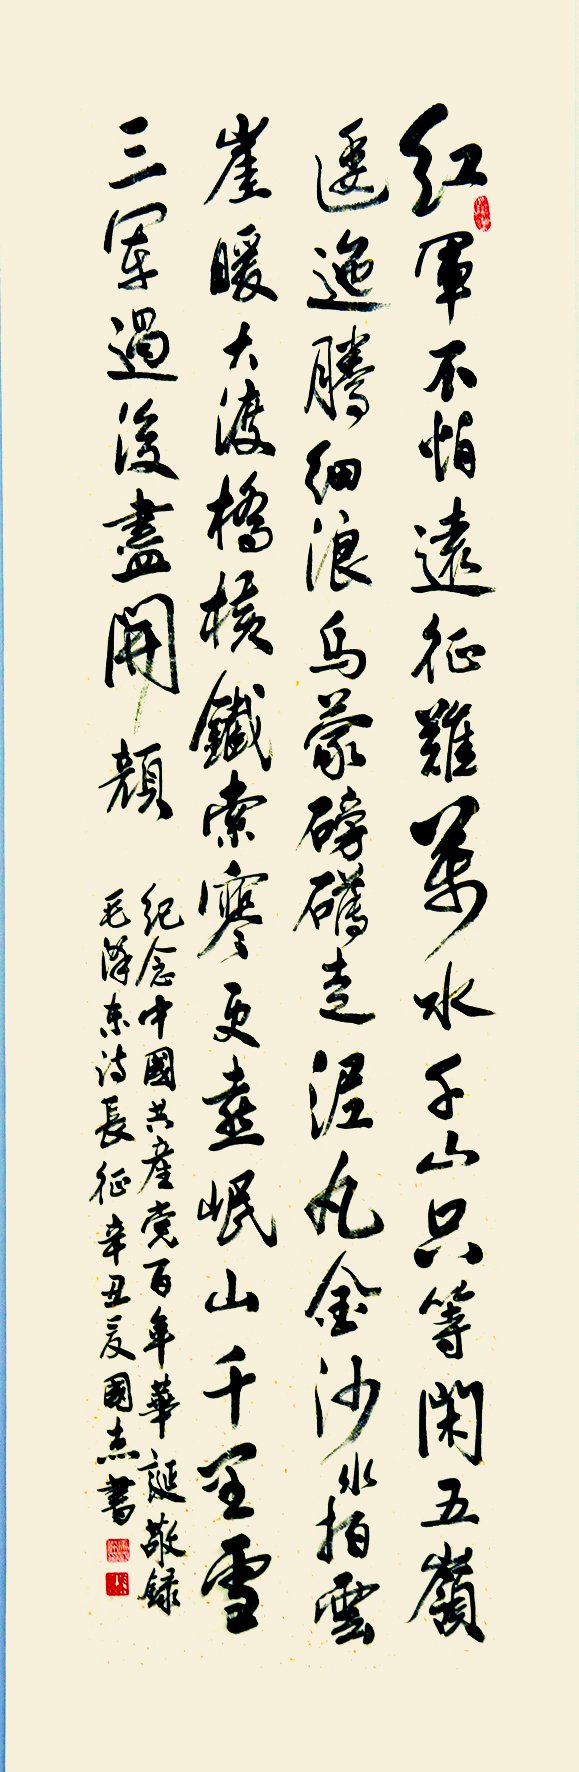 紅軍不怕遠征難萬水千山只等閑五嶺
逶迤騰細浪烏蒙磅礴走泥丸金沙水拍雲
崖暖大渡橋橫鐵索寒更喜岷山千里雪
三軍過後盡開顏
纪念中國共產党百年華誕敬録
毛澤东诗長征辛丑夏國杰書